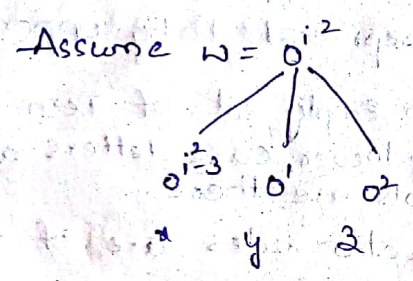 Assume w = 0^{i^2}
0^{i^2-3} 0^1 0^2
x y z